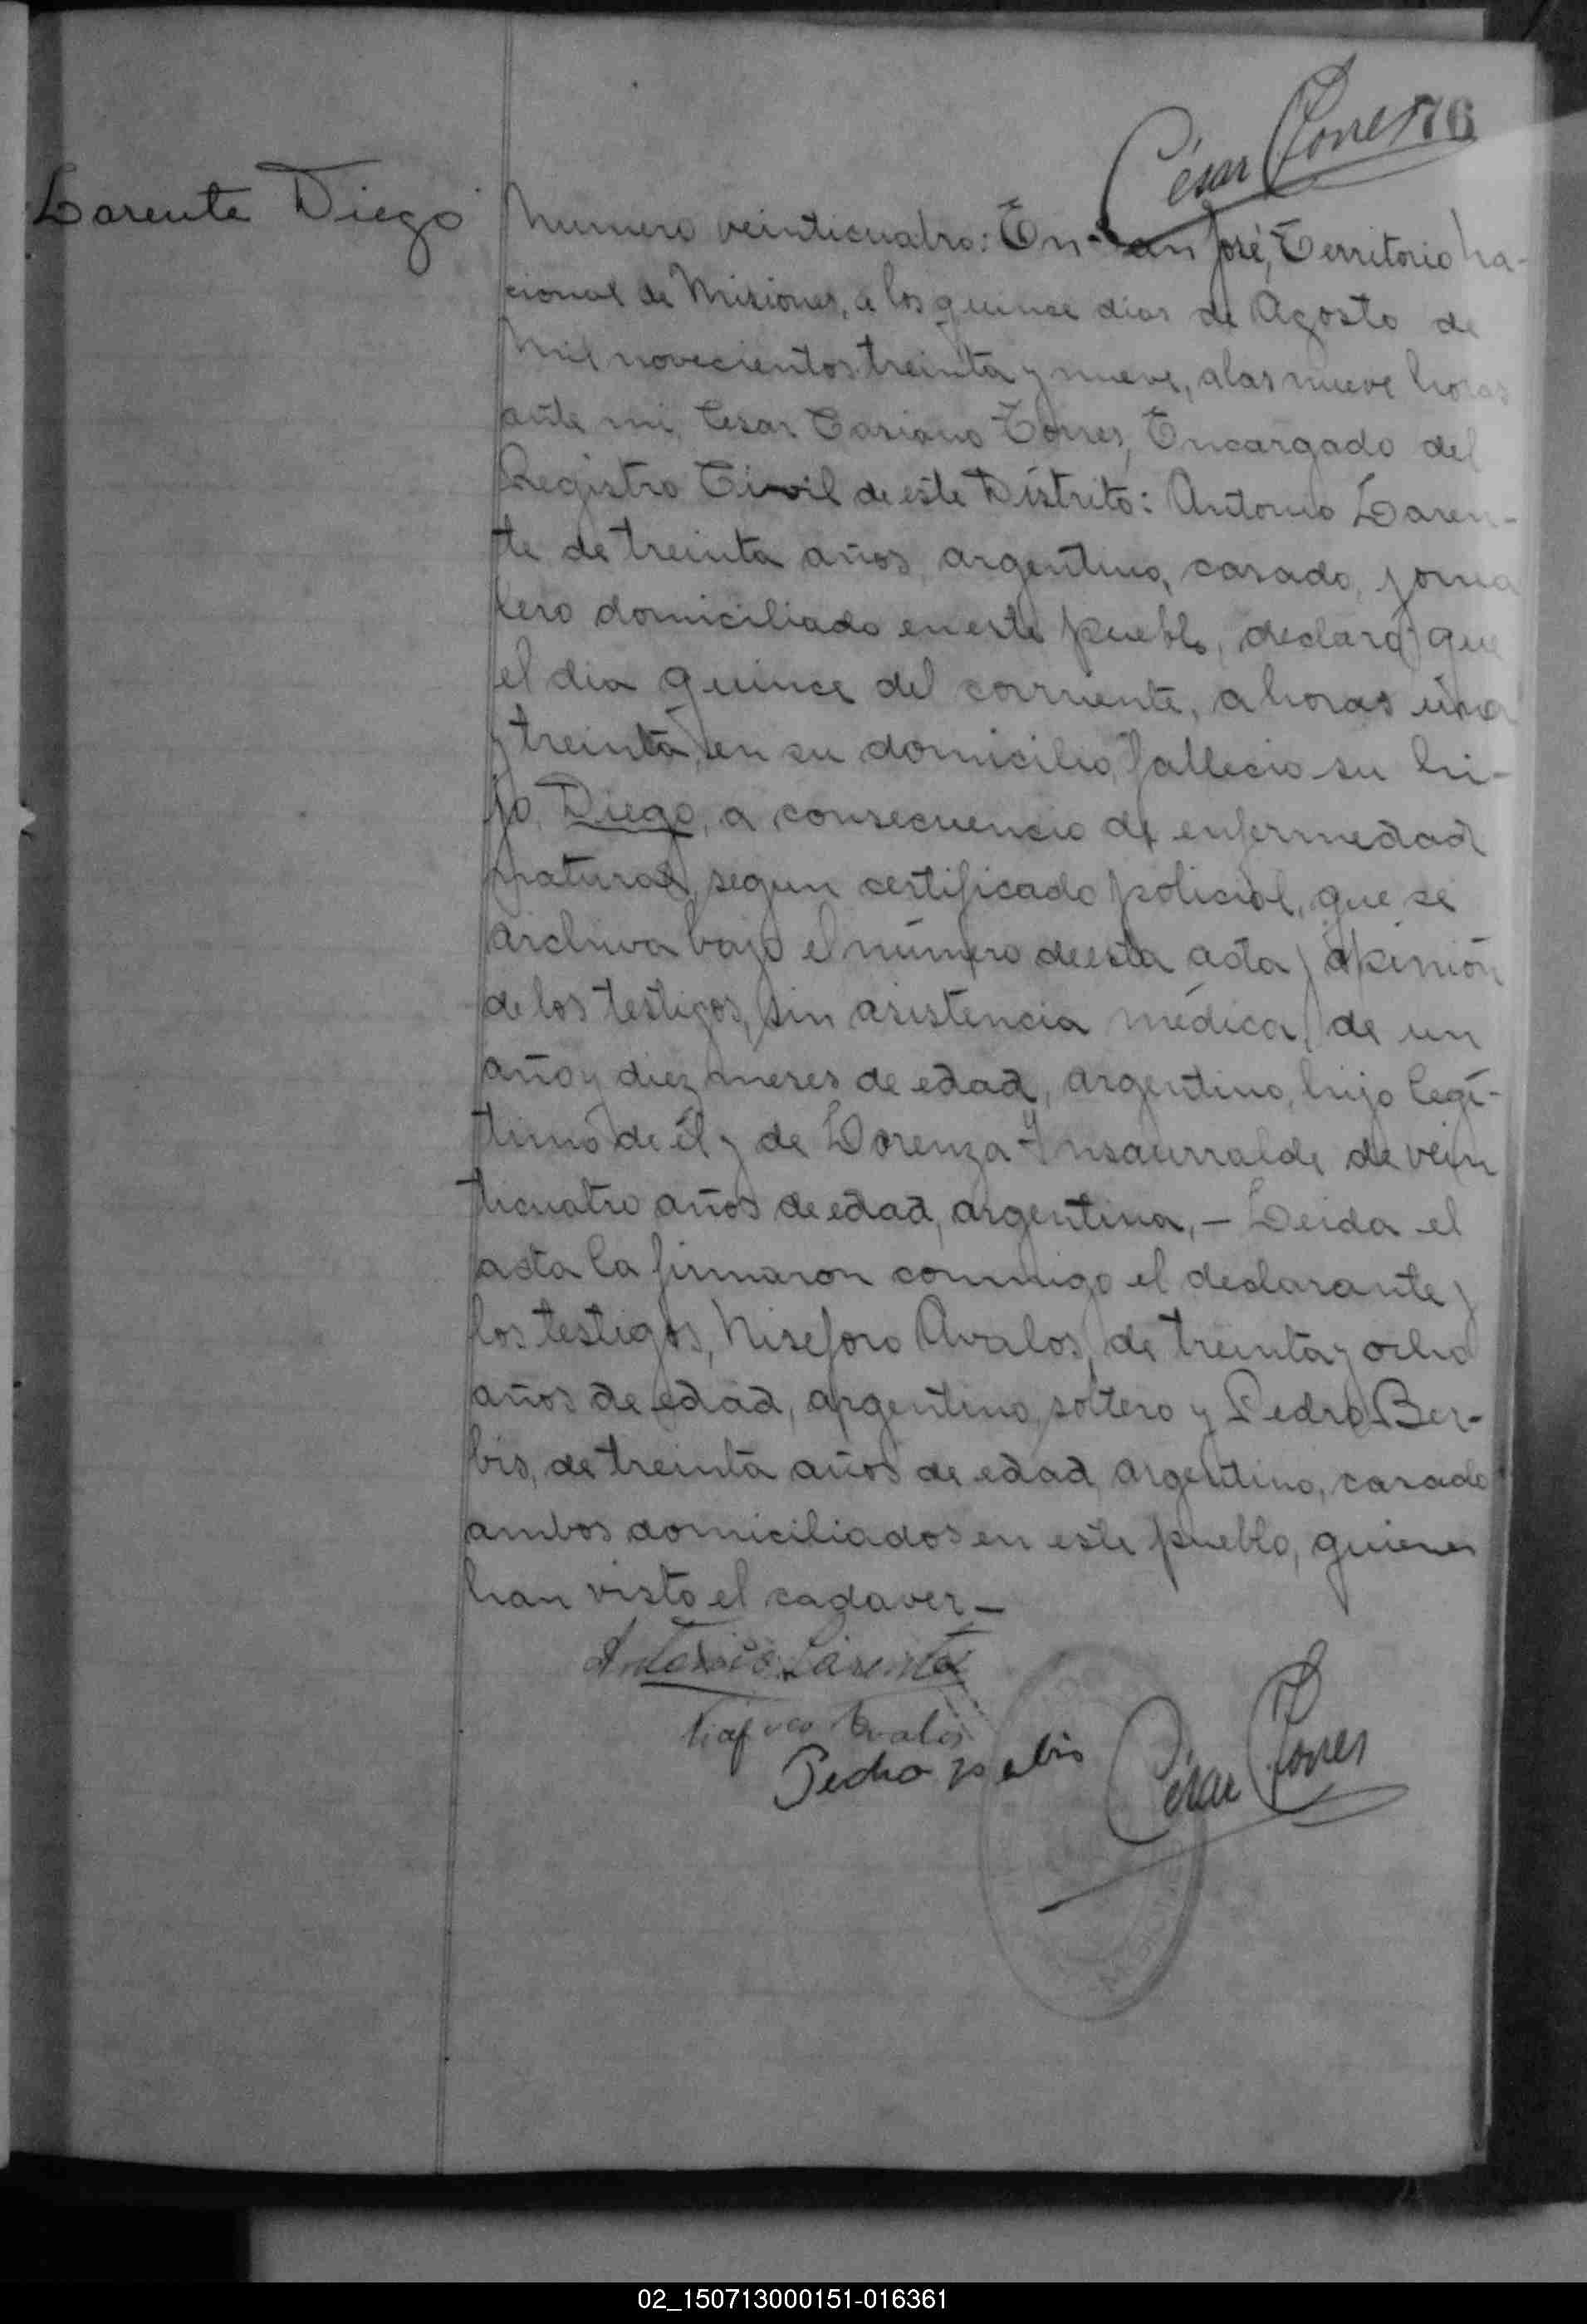 César Torres 76
Larente Diego
Numero veinticuatro: En San José, Territorio Na-
cional de Misiones, a los quince dias de Agosto de
mil novecientos treinta y nueve, a las nueve horas
ante mi, Cesar Casiano Torres, Encargado del
Registro Civil de este Distrito: Antonio Laren-
te de treinta años, argentino, casado, jorna
lero domiciliado en este pueblo, declaró que
el dia quince del corriente, a horas una
y treinta, en su domicilio, fallecio su hi-
jo, Diego, a consecuencia de enfermedad
natural, segun certificado policial, que se
archiva bajo el número de esta acta y opinión
de los testigos, sin asistencia médica, de un
año y diez meses de edad, argentino, hijo legí-
timo de él y de Lorenza Ynsaurralde de vein
ticuatro años de edad, argentina, – Leida el
acta la firmaron conmigo el declarante y
los testigos, Niseforo Avalos, de treinta y ocho
años de edad, argentino, soltero y Pedro Ber-
bis, de treinta años de edad, argentino, casado
ambos domiciliados en este pueblo, quienes
han visto el cadaver –
Antonio Larente
Avalos
Pedro
César Torres
MISIONES
02_150713000151-016361